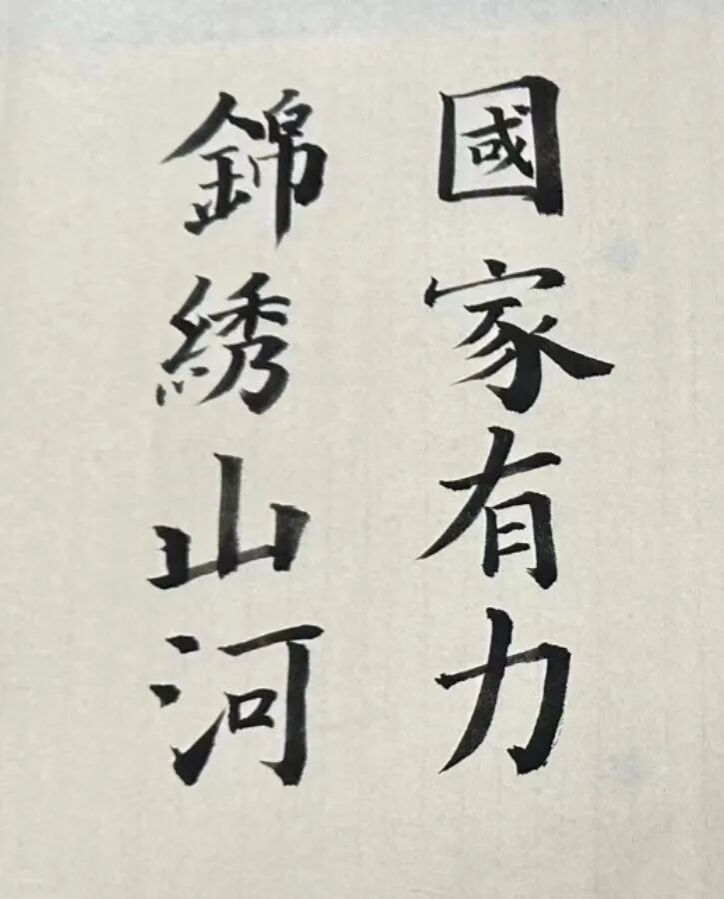 國家有力
錦綉山河